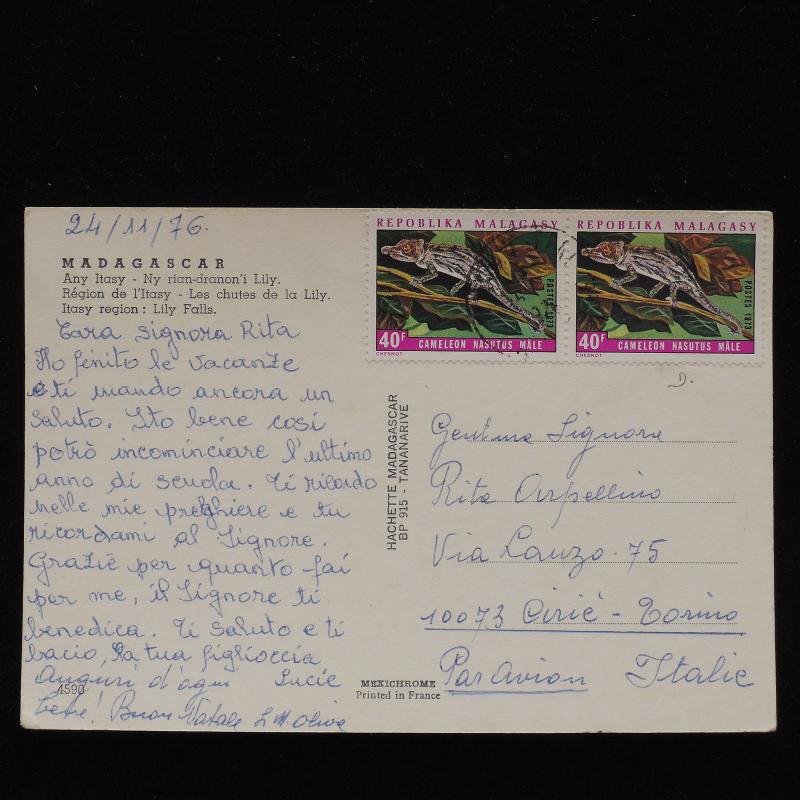 24/11/76.
MADAGASCAR
Any Itasy - Ny rian-dranon'i Lily.
Région de l'Itasy - Les chutes de la Lily.
Itasy region : Lily Falls.
Cara Signora Rita
Ho fenito le vacanze
e ti mando ancora un
saluto. Sto bene così
potrò incominciare l'ultimo
anno di scuola. Ti ricordo
nelle mie preghiere e tu
ricordami al Signore.
Grazie per quanto fai
per me, il Signore ti
benedica. Ti saluto e ti
bacio, la tua figlioccia
Lucie
Auguri d'ogni
bene! Buon Natale
4590
REPOBLIKA MALAGASY
POSTES 1973
40F CAMELEON NASUTUS MÂLE
CHESNOT
REPOBLIKA MALAGASY
POSTES 1973
40F CAMELEON NASUTUS MÂLE
CHESNOT
D.
HACHETTE MADAGASCAR
BP 915 - TANANARIVE
Gent.ma Signora
Rita Arpellino
Via Lanzo 75
10073 Cirié - Torino
Par Avion Italie
MEXICHROME
Printed in France